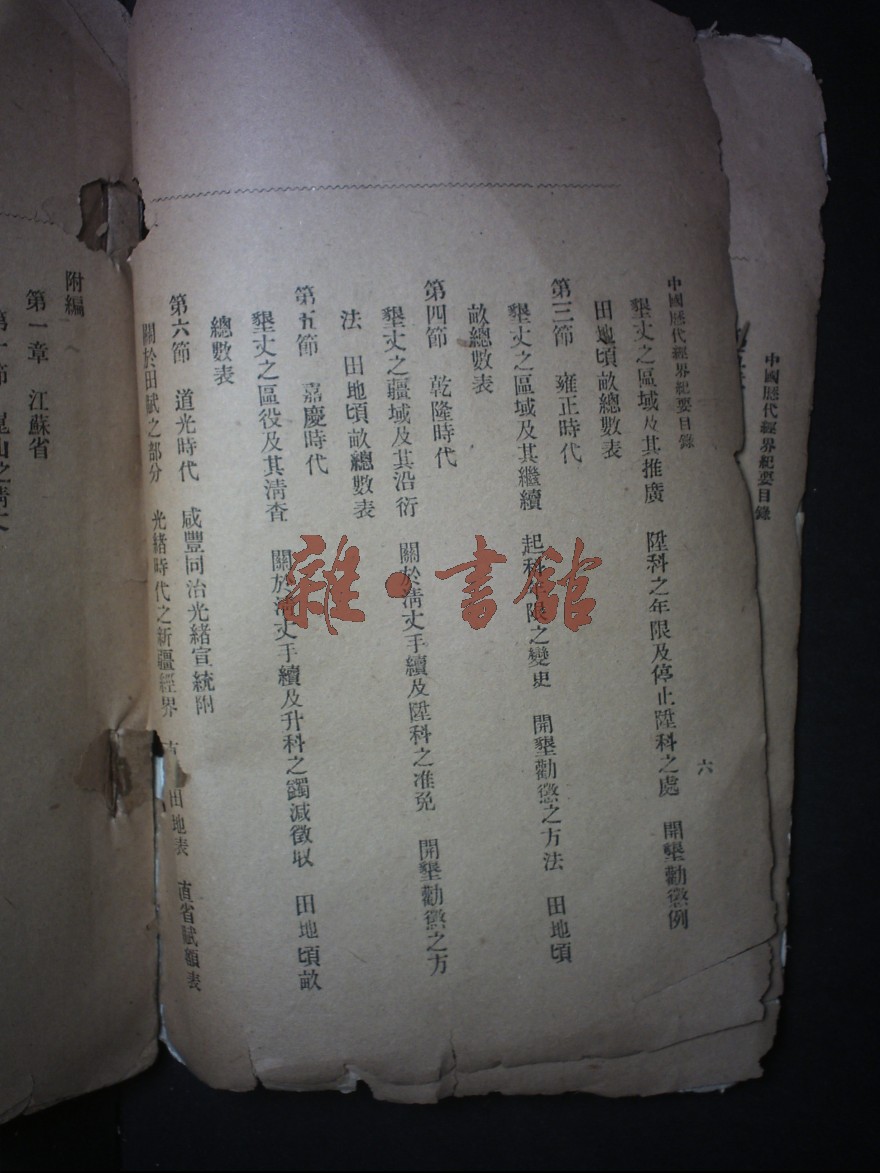 中國歷代經界紀要目錄
中國歷代經界紀要目錄
六
墾丈之區域及其推廣　陞科之年限及停止陞科之處　開墾勸懲例
田地頃畝總數表
第三節　雍正時代
墾丈之區域及其繼續　起科年限之變史　開墾勸懲之方法　田地頃
畝總數表
第四節　乾隆時代
墾丈之疆域及其沿衍　關於清丈手續及陞科之准免　開墾勸懲之方
法　田地頃畝總數表
第五節　嘉慶時代
墾丈之區役及其清查　關於清丈手續及升科之蠲減徵収　田地頃畝
總數表
第六節　道光時代　咸豐同治光緒宣統附
關於田賦之部分　光緒時代之新疆經界　田地表　直省賦額表
附編
第一章　江蘇省
第一節　崑山之清丈
雜·書館